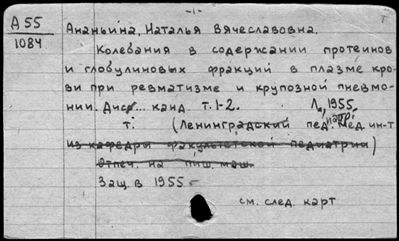 -1-
А 55
1084
Ананьина, Наталья Вячеславовна.
Колебания в содержании протеинов
и глобулиновых фракций в плазме кро-
ви при ревматизме и крупозной пневмо-
нии. Дисс... канд т. 1-2. Л., 1955.
т. (Ленинградский пед. мед. ин-т
из кафедры факультетской педиатрии)
Отпеч. на пиш. маш.
Защ. в 1955
см. след. карт